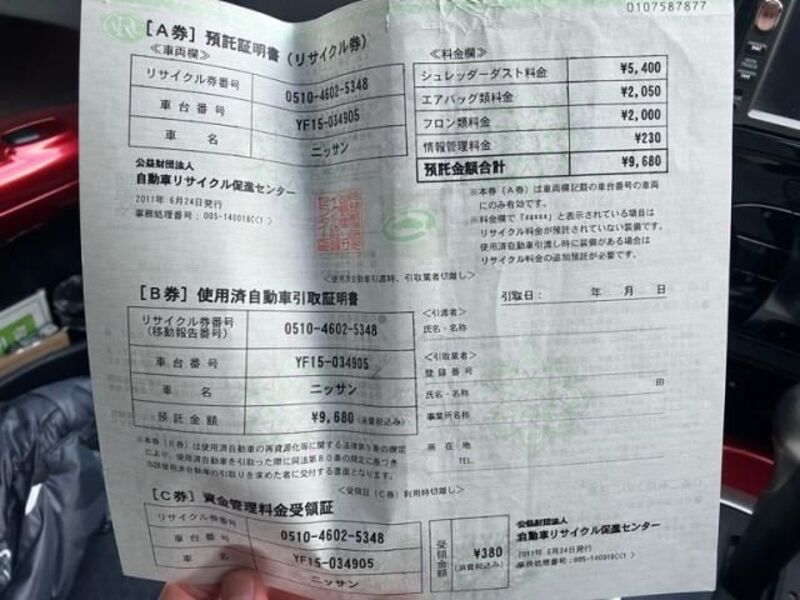 0107587877
[A券] 預託証明書(リサイクル券)
≪車両欄≫
リサイクル券番号 0510-4602-5348
車台番号 YF15-034905
車名 ニッサン
公益財団法人
自動車リサイクル促進センター
2011年 6月24日発行
事務処理番号:005-140018C(1 )
≪料金欄≫
シュレッダーダスト料金 ¥5,400
エアバッグ類料金 ¥2,050
フロン類料金 ¥2,000
情報管理料金 ¥230
預託金額合計 ¥9,680
※本券(A券)は車両欄記載の車台番号の車両
にのみ有効です。
※料金欄で「*****」と表示されている項目は
リサイクル料金が預託されていない装備です。
使用済自動車引渡し時に装備がある場合は
リサイクル料金の追加預託が必要です。
<使用済自動車引渡時、引取業者切離し>
[B券] 使用済自動車引取証明書
引取日: 年 月 日
リサイクル券番号
(移動報告番号) 0510-4602-5348
車台番号 YF15-034905
車名 ニッサン
預託金額 ¥9,680(消費税込み)
<引渡者>
氏名・名称
<引取業者>
登録番号
氏名・名称 印
事業所名称
所在地
TEL.
※本券(B券)は使用済自動車の再資源化等に関する法律第3条の規定
により、使用済自動車を引取った際に同法第80条の規定に基づき
当該使用済自動車の引取りを求めた者に交付する書面となります。
<受領証(C券)利用時切離し>
[C券] 資金管理料金受領証
リサイクル券番号 0510-4602-5348
車台番号 YF15-034905
車名 ニッサン
受領金額 ¥380
(消費税込み)
公益財団法人
自動車リサイクル促進センター
2011年 6月24日発行
事務処理番号:005-140018C(1 )